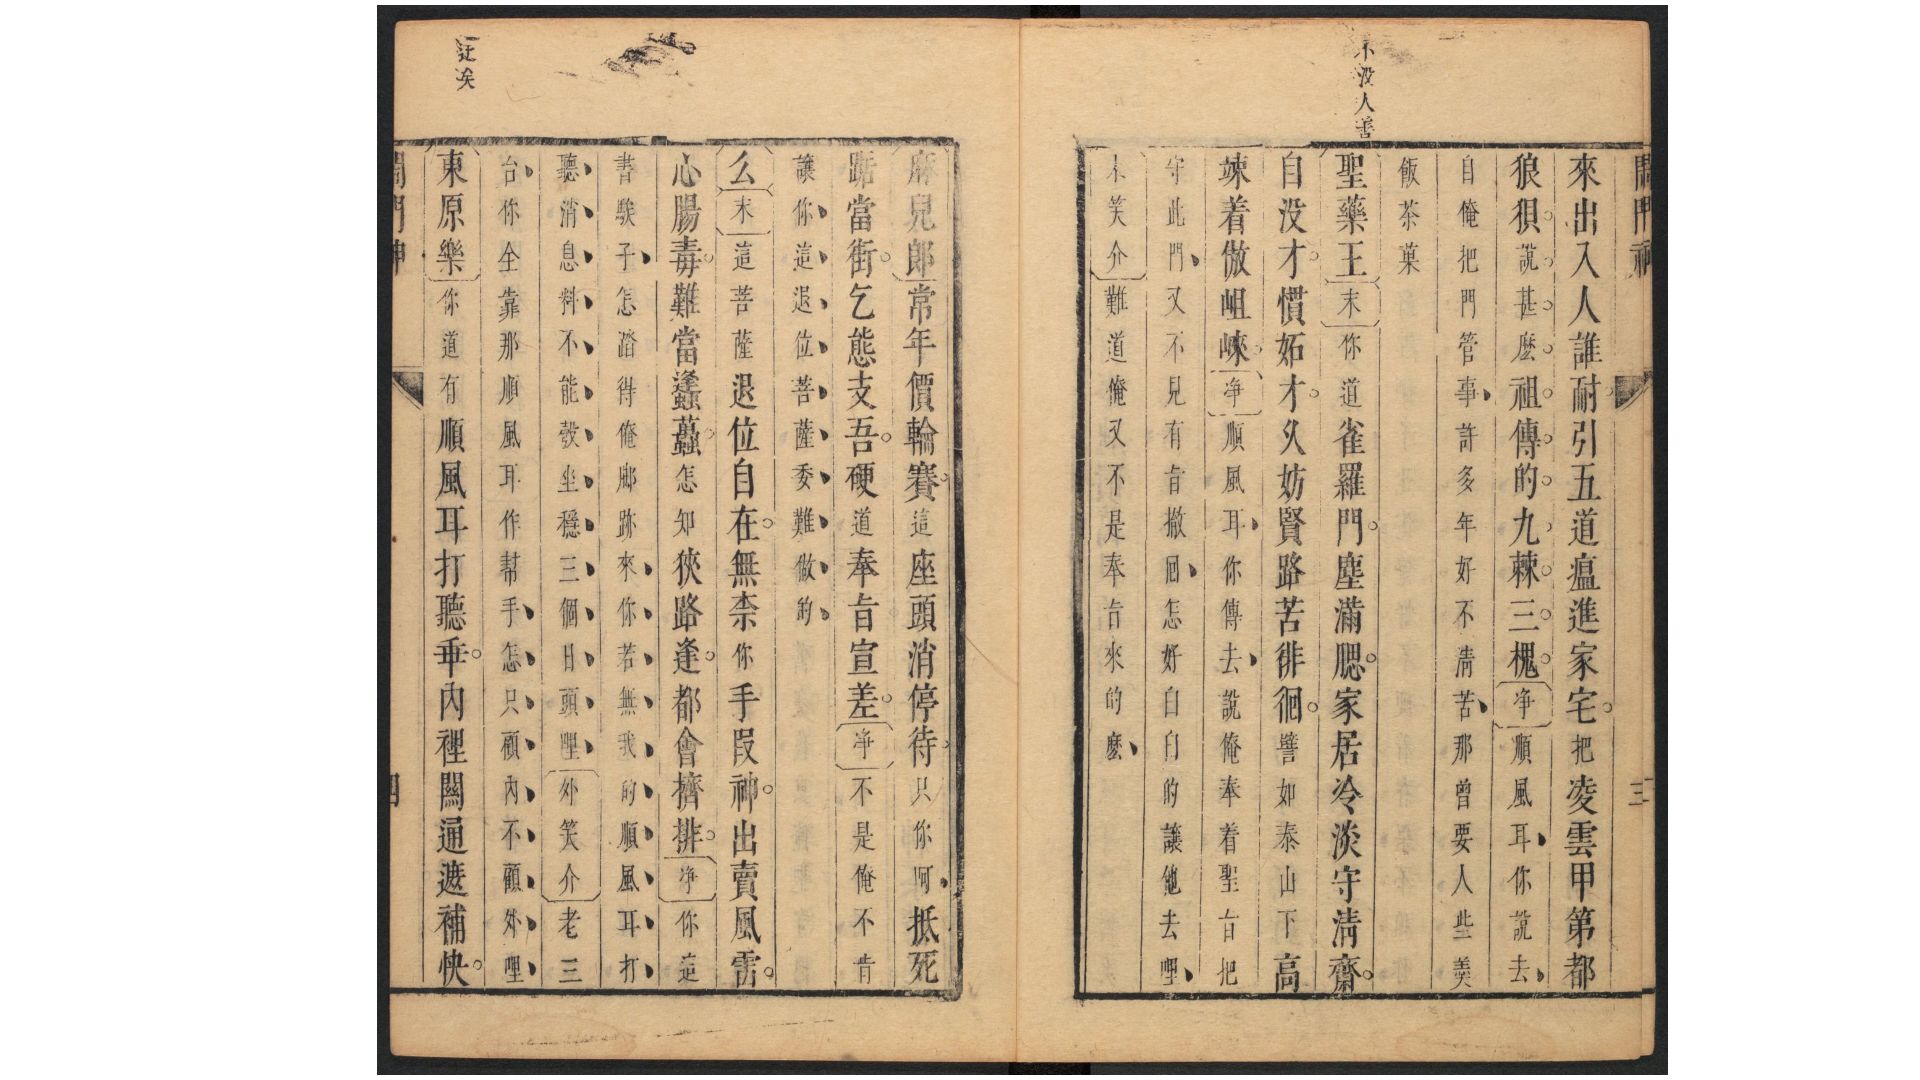 不沒人善
鬧門神
三
來出入人誰耐引五道瘟進家宅把凌雲甲第都
狼狽說甚麽祖傳的九棘三槐淨順風耳你說去
自俺把門管事許多年好不清苦那曾要人些羙
飯茶菓
聖藥王末你道雀羅門塵滿腮家居冷淡守清齋
自沒才慣妬才乆妨賢路苦徘徊譬如泰山下高
竦着傲岨崍淨順風耳你傳去說俺奉着聖旨把
守此門又不見有旨撤回怎好白白的讓他去哩
末笑介難道俺又不是奉旨來的麽
麻兒郎常年價輪賽這座頭消停待只你呵抵死
踞當街乞態支吾硬道奉旨宣差淨不是俺不肯
讓你這退位菩薩委難做的
么末這菩薩退位自在無柰你手叚神出賣風雲
心腸毒難當蓬蠆怎知狹路逢都會擠排淨你這
書騃子怎踏得俺郷跡來你若無我的順風耳打
聽消息料不能彀坐穩三個日頭哩外笑介老三
台你全靠那順風耳作幇手怎只顧內不顧外哩
東原樂你道有順風耳打聽乖內裡關通遮補快
鬧門神
四